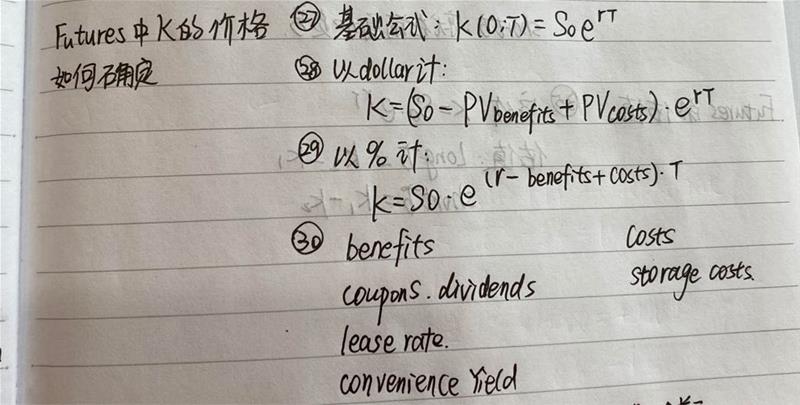 Futures中K的价格
如何确定
㉗ 基础公式: K(0,T) = S₀e^{rT}
㉘ 以dollar计:
K=(S₀ - PV_{benefits} + PV_{costs})·e^{rT}
㉙ 以%计:
K=S₀·e^{(r-benefits+costs)·T}
㉚ benefits costs
coupons. dividends storage costs.
lease rate.
convenience Yield